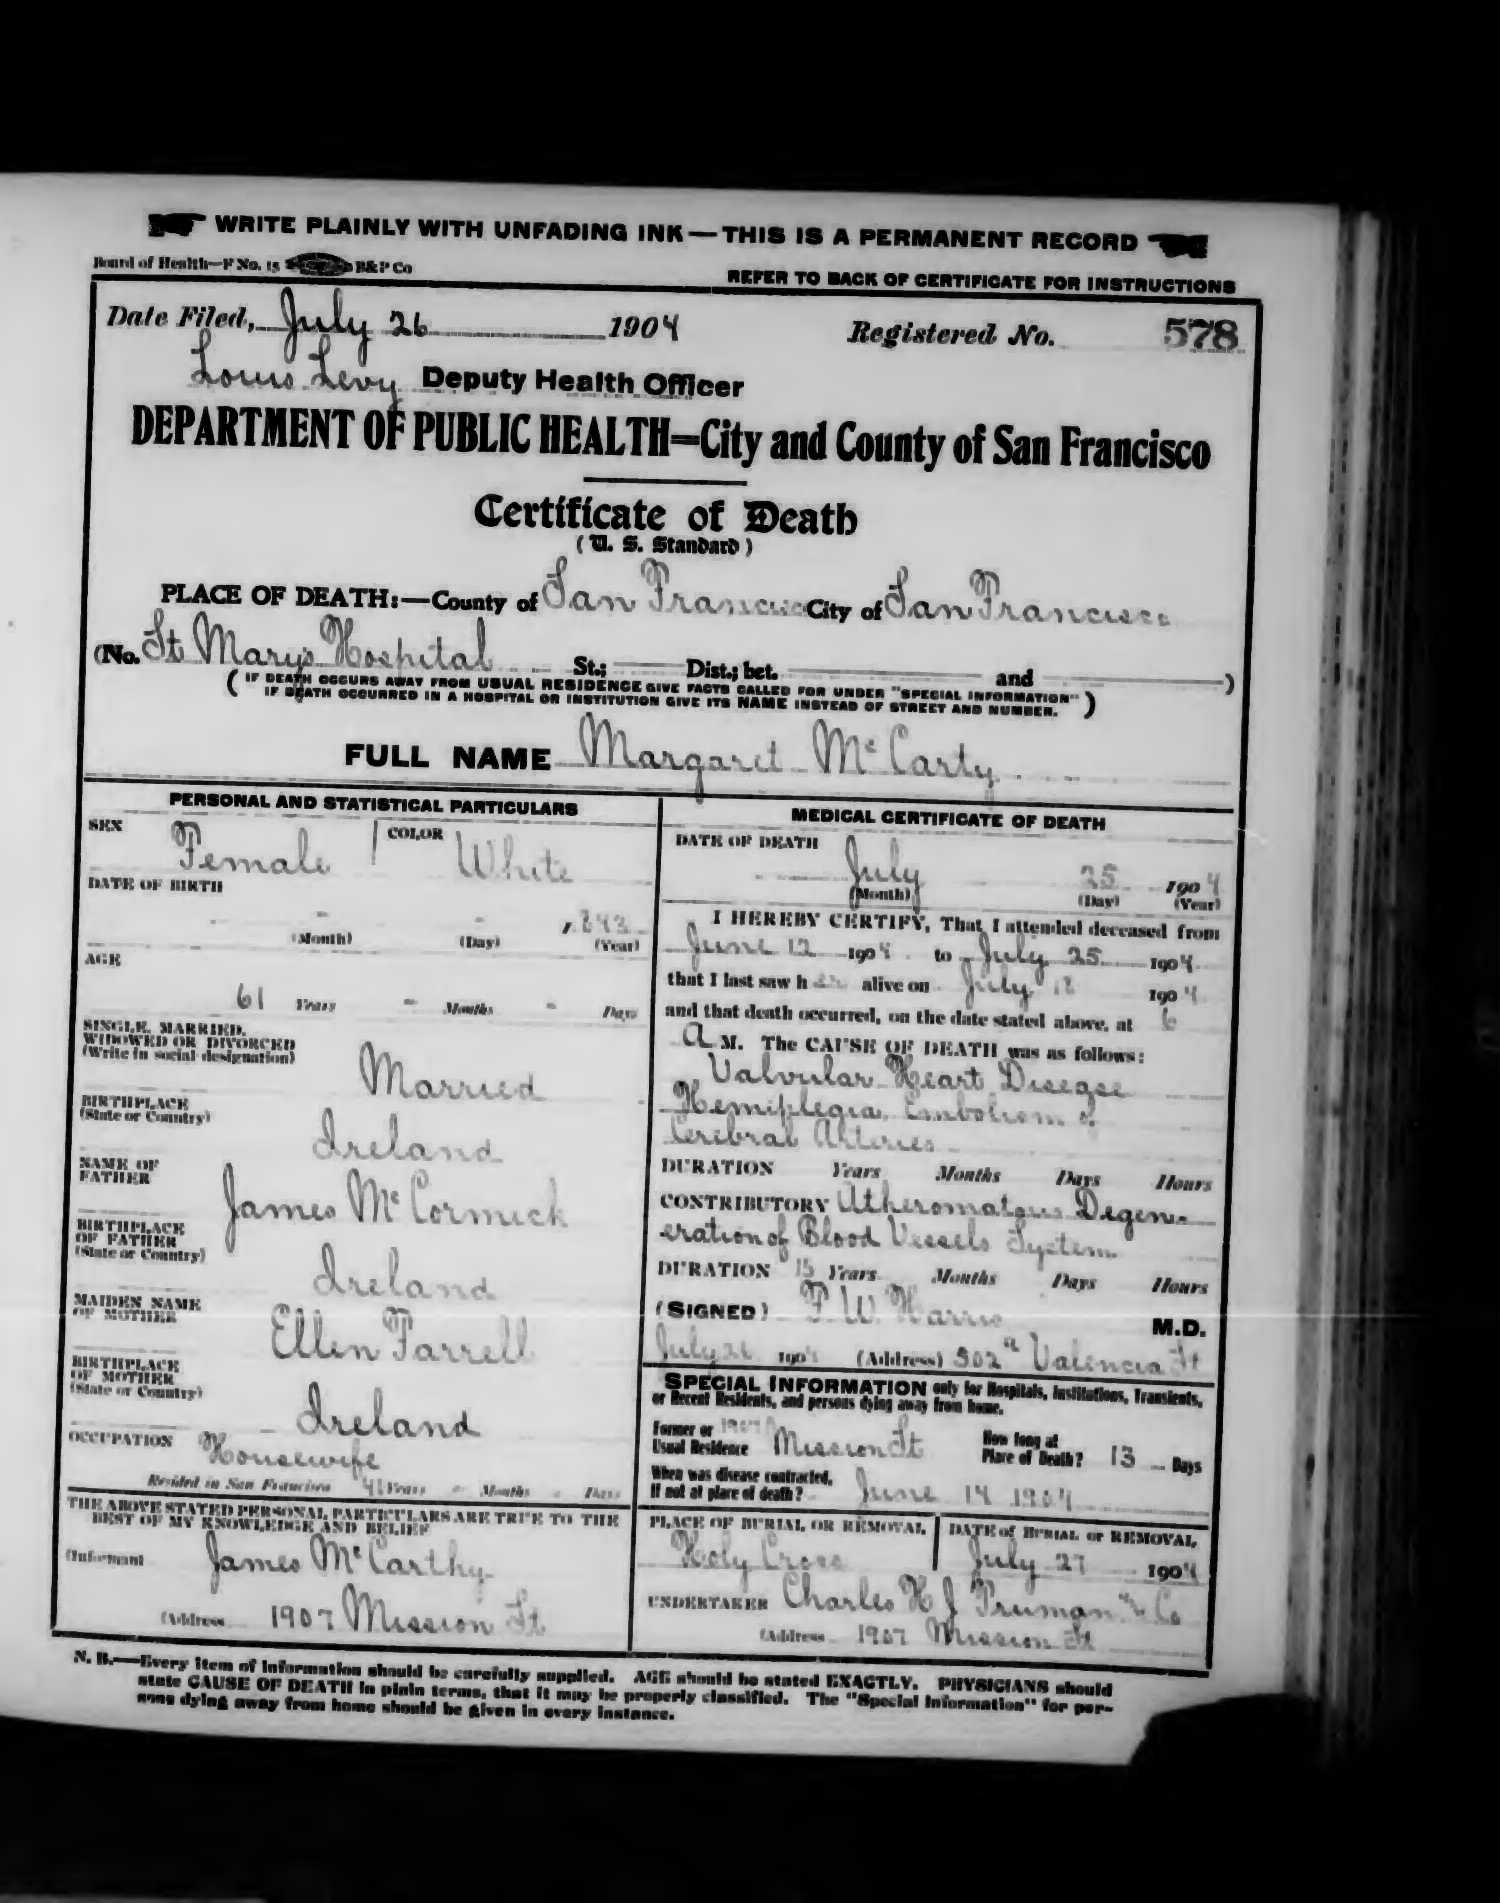 WRITE PLAINLY WITH UNFADING INK — THIS IS A PERMANENT RECORD
Board of Health—F No. 15 B&P Co
REFER TO BACK OF CERTIFICATE FOR INSTRUCTIONS
Date Filed, July 26 1904 Registered No. 578
Louis Levy Deputy Health Officer
DEPARTMENT OF PUBLIC HEALTH=City and County of San Francisco
Certificate of Death
(U. S. Standard)
PLACE OF DEATH:—County of San Francisco City of San Francisco
(No. St Mary's Hospital St.; Dist.; bet. and )
( IF DEATH OCCURS AWAY FROM USUAL RESIDENCE GIVE FACTS CALLED FOR UNDER "SPECIAL INFORMATION"
IF DEATH OCCURRED IN A HOSPITAL OR INSTITUTION GIVE ITS NAME INSTEAD OF STREET AND NUMBER. )
FULL NAME Margaret McCarty
PERSONAL AND STATISTICAL PARTICULARS
SEX Female COLOR White
DATE OF BIRTH
- - 1843
(Month) (Day) (Year)
AGE
61 Years - Months - Days
SINGLE, MARRIED,
WIDOWED OR DIVORCED
(Write in social designation)
Married
BIRTHPLACE
(State or Country)
Ireland
NAME OF
FATHER
James McCormick
BIRTHPLACE
OF FATHER
(State or Country)
Ireland
MAIDEN NAME
OF MOTHER
Ellen Farrell
BIRTHPLACE
OF MOTHER
(State or Country)
Ireland
OCCUPATION Housewife
Resided in San Francisco 41 Years - Months - Days
THE ABOVE STATED PERSONAL PARTICULARS ARE TRUE TO THE
BEST OF MY KNOWLEDGE AND BELIEF
(Informant James McCarthy
(Address 1907 Mission St
MEDICAL CERTIFICATE OF DEATH
DATE OF DEATH
July 25 1904
(Month) (Day) (Year)
I HEREBY CERTIFY, That I attended deceased from
June 12 1904 to July 25 1904
that I last saw her alive on July 1904
and that death occurred, on the date stated above, at 6
A M. The CAUSE OF DEATH was as follows:
Valvular Heart Disease
Hemiplegia, Embolism of
Cerebral Arteries
DURATION Years Months Days Hours
CONTRIBUTORY Atheromatous Degen-
eration of Blood Vessels System
DURATION 15 Years Months Days Hours
(SIGNED) F. W. Harris M.D.
July 26 1904 (Address) 502 Valencia St
SPECIAL INFORMATION only for Hospitals, Institutions, Transients,
or Recent Residents, and persons dying away from home.
Former or
Usual Residence 1907 Mission St
How long at
Place of Death? 13 Days
When was disease contracted,
If not at place of death? June 14 1904
PLACE OF BURIAL OR REMOVAL
Holy Cross
DATE of BURIAL or REMOVAL
July 27 1904
UNDERTAKER Charles H J Truman & Co
(Address 1907 Mission St
N. B.—Every item of information should be carefully supplied. AGE should be stated EXACTLY. PHYSICIANS should
state CAUSE OF DEATH in plain terms, that it may be properly classified. The "Special Information" for per-
sons dying away from home should be given in every instance.